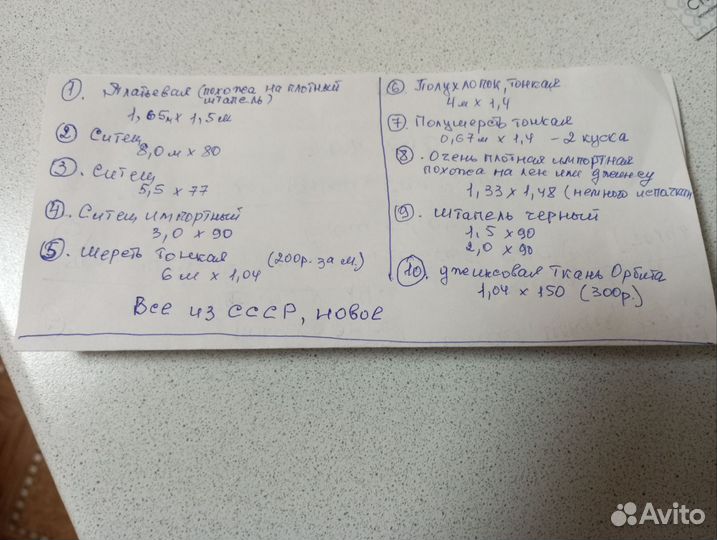 1. Платьевая (похожа на плотный
штапель)
1,65м х 1,5м
2 Ситец
8,0м х 80
3. Ситец
5,5 х 77
4. Ситец импортный
3,0 х 90
5. Шерсть тонкая (200р. за м.)
6м х 1,04
Все из СССР, новое
6 Полухлопок, тонкая
4м х 1,4
7. Полушерсть тонкая
0,67м х 1,4 – 2 куска
8. Очень плотная импортная
похожа на лен или джинсу
1,33 х 1,48 (немного испачкан
9. Штапель черный
1,5 х 90
2,0 х 90
10. Джинсовая ткань Орбита
1,04 х 150 (300р.)
Avito